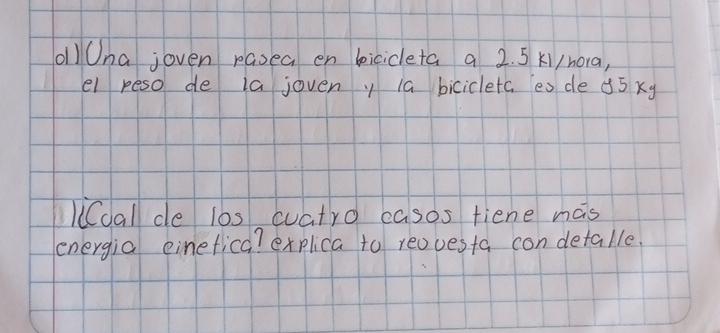 d) Una joven pasea en bicicleta a 2.5 Kl/hora,
el peso de la joven y la bicicleta es de 85 Kg
1) ¿Cual de los cuatro casos tiene más
energia cinetica? explica tu reouesta con detalle.